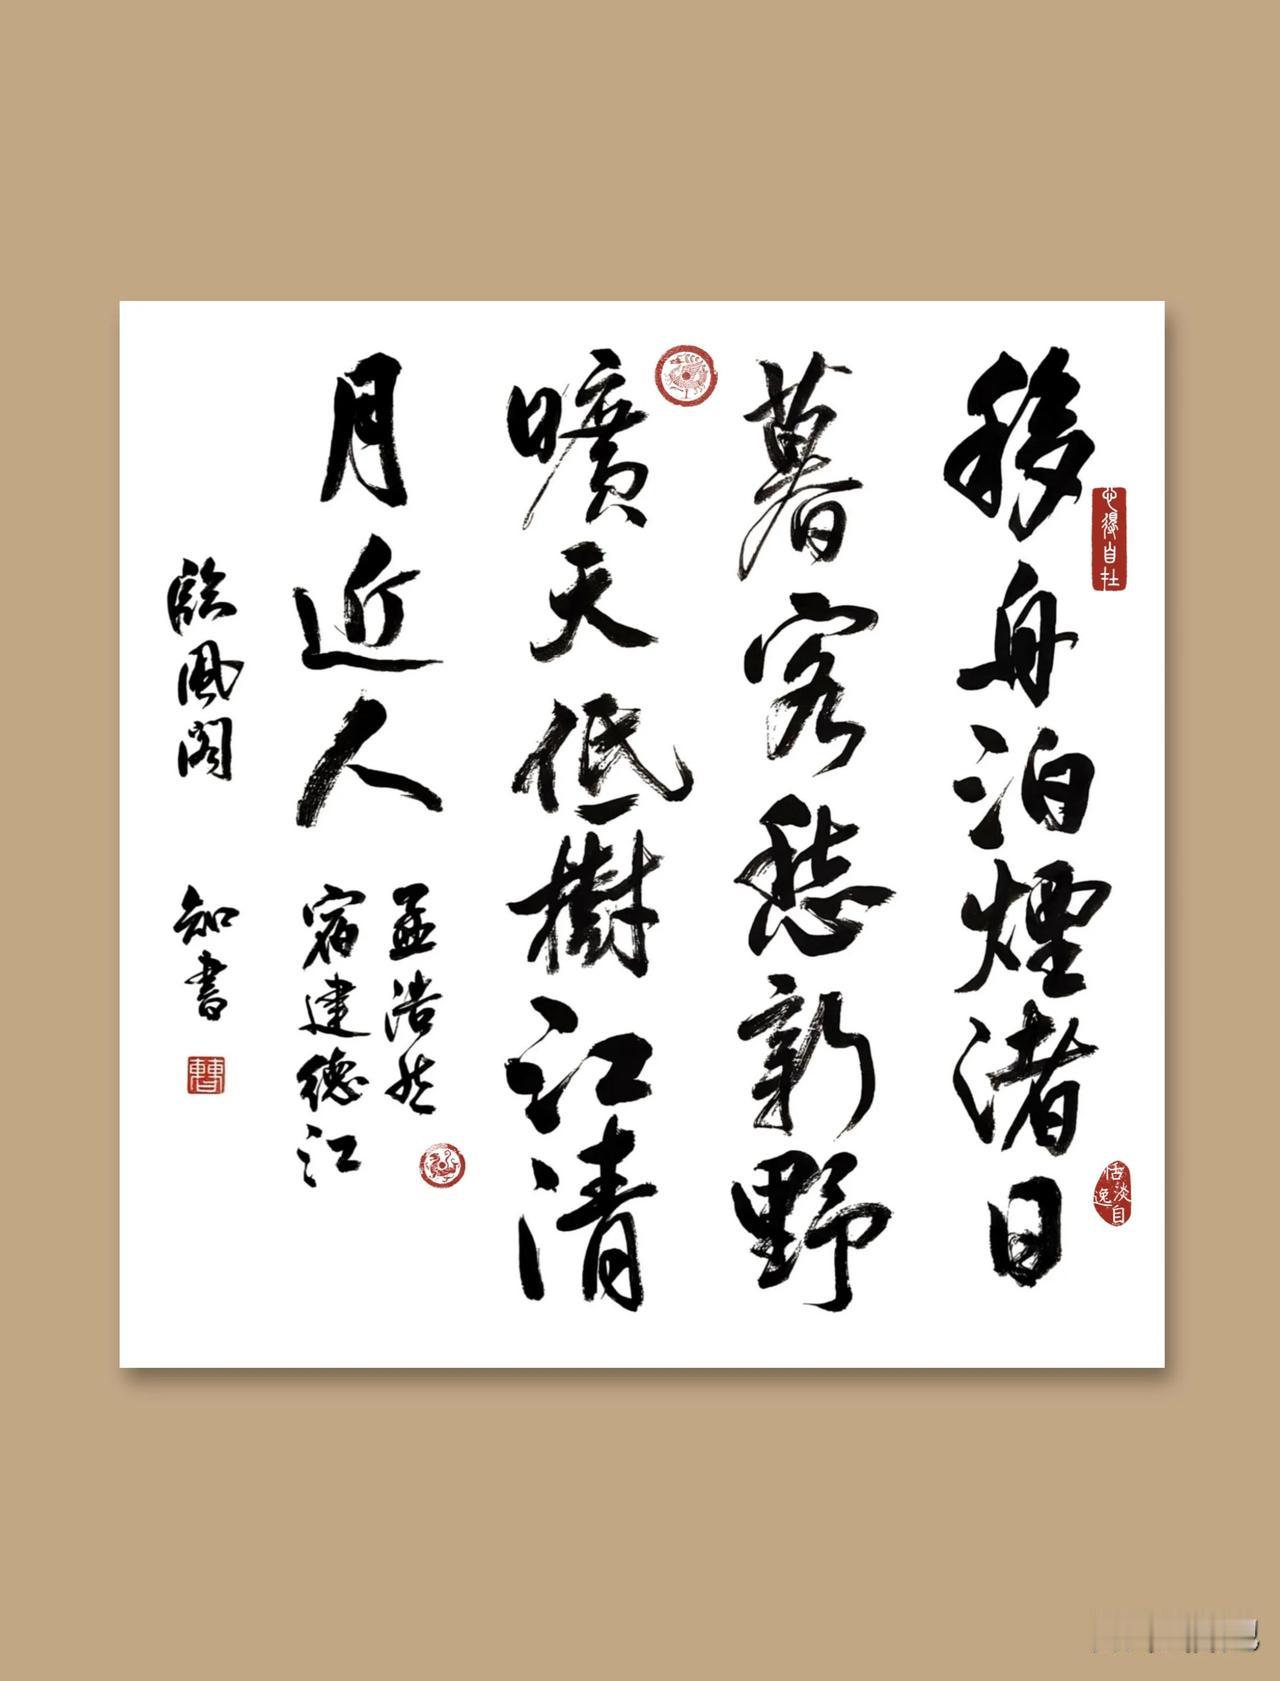 移舟泊煙渚日
暮客愁新野
曠天低樹江清
月近人
孟浩然
宿建德江
臨風閣 知書
心得自在
恬淡自逸